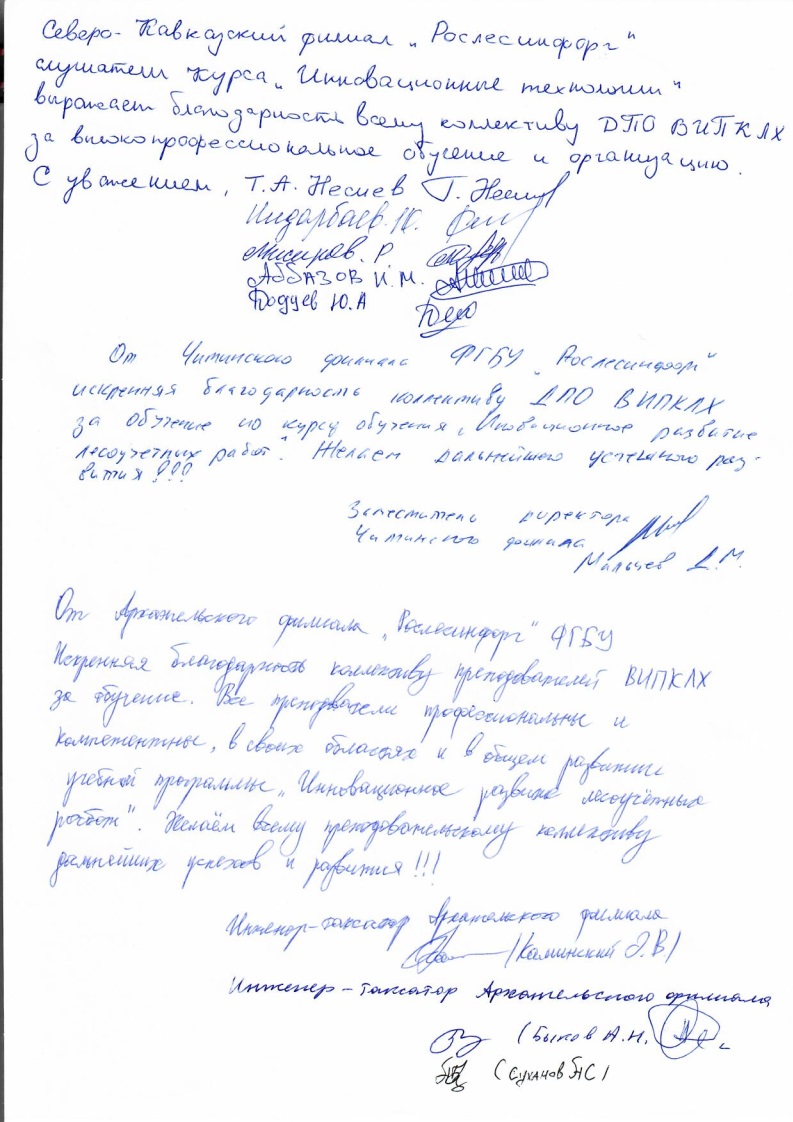 Северо-Кавказский филиал „Рослесинфорг"
слушатели курса „Инновационные технологии"
выражает благодарность всему коллективу ДПО ВИПКЛХ
за высокопрофессиональное обучение и организацию.
С уважением, Т.А. Несиев
Р.
Аббазов И.М.
Додуев Ю.А
От Читинского филиала ФГБУ „Рослесинфорг"
искренняя благодарность коллективу ДПО ВИПКЛХ
за обучение по курсу обучения „Иновационное развитие
лесоучетных работ". Желаем дальнейшего успешного раз-
вития!!!
Заместитель директора
Читинского филиала
Мальцев А.М.
От Архангельского филиала „Рослесинфорг" ФГБУ
Искренняя благодарность коллективу преподователей ВИПКЛХ
за обучение. Все преподватели профессиональны и
компетентны, в своих областях и в общем развитии
учебной программы „Инновационное развитие лесоучётных
работ". Желаем всему преподовательскому коллективу
дальнейших успехов и развития!!!
Инженер-таксатор Архангельского филиала
/Каминский Э.В/
Инженер-таксатор Архангельского филиала
(Быков А.Н.
(Суханов